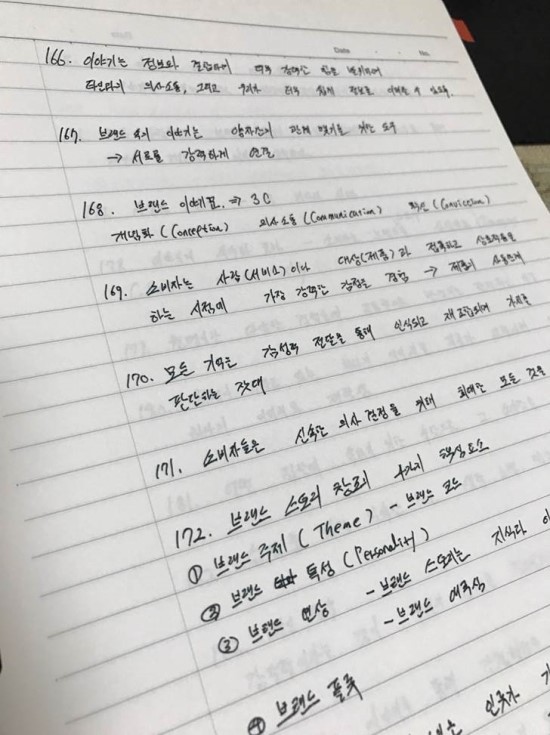 Date No.
166. 이야기는 정보와 결합하여 더욱 강력한 힘을 발휘하며
의사소통, 그리고 우리가 더욱 쉽게 정보를 이해할 수 있도록
167. 브랜드 이야기는 양자간의 관계 맺기를 돕는 도구
→ 서로를 강력하게 연결
168. 브랜드 이야기, → 3C
개념화 (Conception) 의사소통 (Communication) 확신 (Conviction)
169. 소비자는 사람(서비스)이나 대상(제품)과 접촉하고 상호작용을
하는 시점에 가장 강력한 감정을 경험 → 제품이
170. 모든 기억은 감성적 판단을 통해 인식되고 재조합되어 가치를
판단하는 잣대
171. 소비자들은 신속한 의사결정을 위해 최대한 모든 것을
172. 브랜드 스토리 창조의 4가지 핵심요소
① 브랜드 주제 (Theme) - 브랜드 코드
② 브랜드 특성 (Personality)
③ 브랜드 연상 - 브랜드 스토리는 지식과
- 브랜드
④ 브랜드 플롯